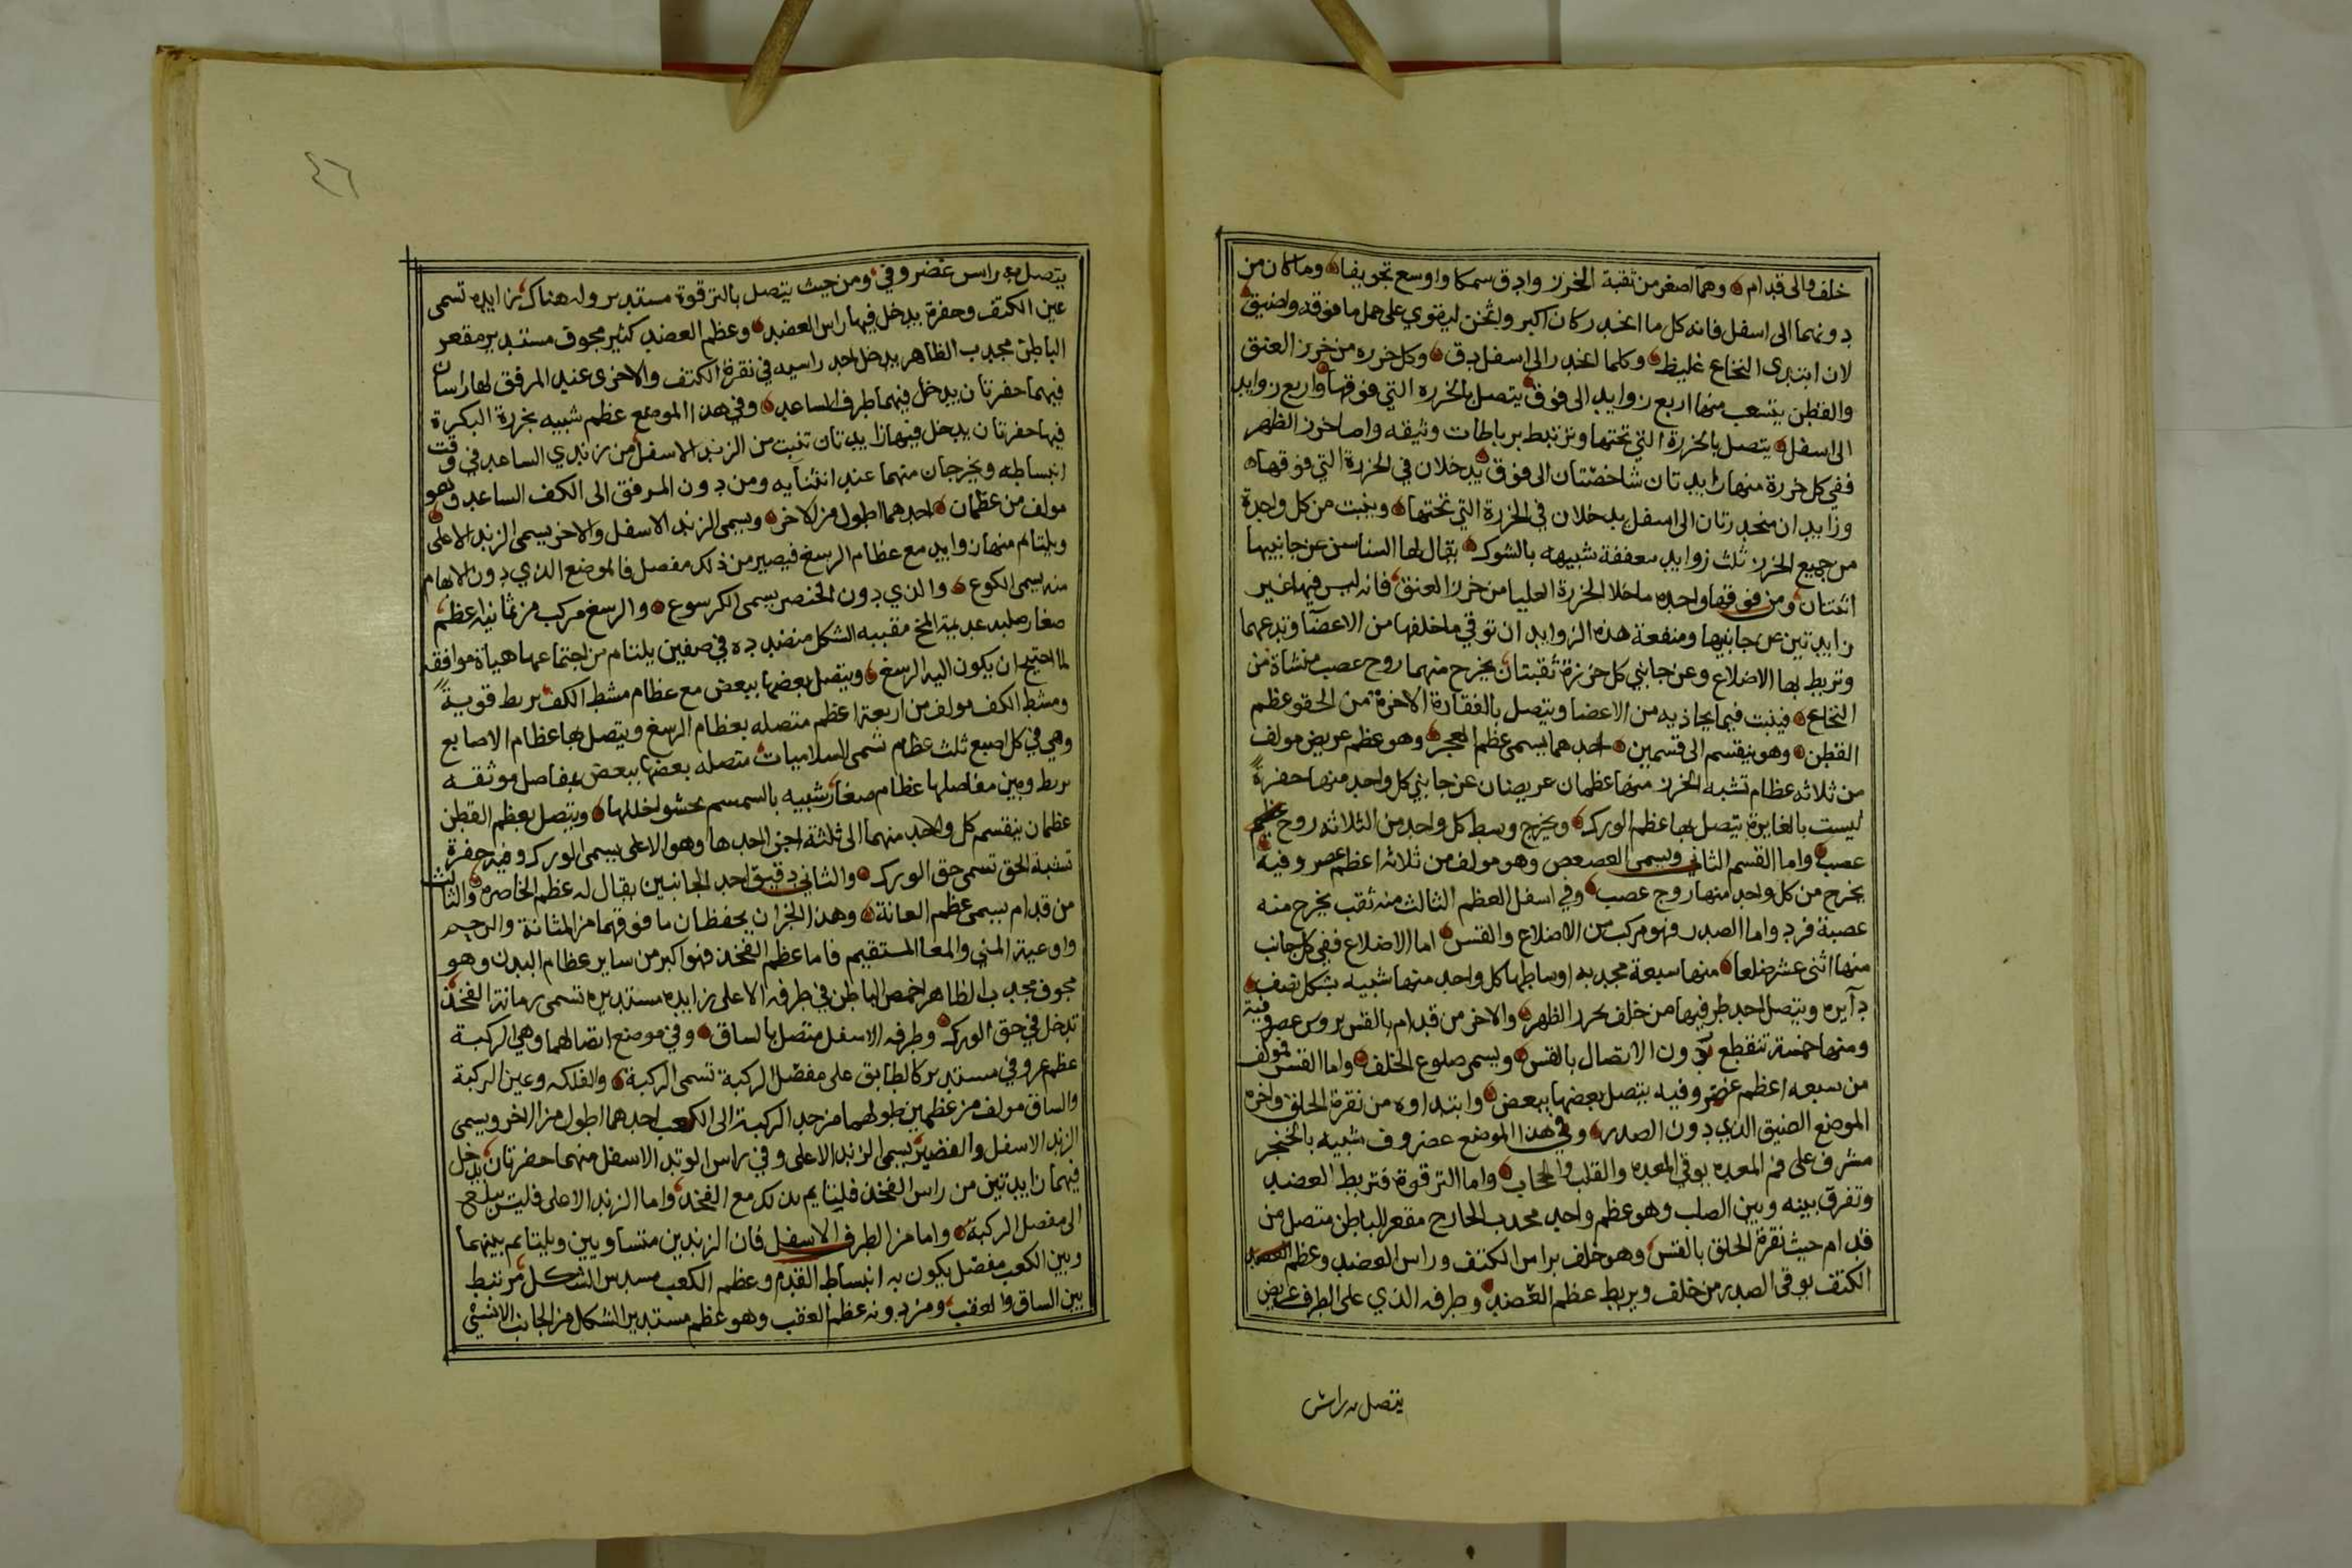 خلف والى قدام وهما اصغر من ثقبة الخرز وادق سمكا واوسع تجويفا وما كان من
دونهما الى اسفل فانه كل ما انحدر كان اكبر واثخن ليقوي على حمل ما فوقه واضيق
لان ابتدى النخاع غليظ وكلما انحدر الى اسفل دق وكل خرزه من خرز العنق
والقطن يتشعب منها اربع زوايد الى فوق يتصل بالخرزه التي فوقها واربع زوايد
الى اسفل يتصل بالخرزة التي تحتها وترتبط برباطات وثيقه واما خرز الظهر
ففي كل خرزة منها زايدتان شاخصتان الى فوق يدخلان في الخرزة التي فوقها
وزايدان منحدرتان الى اسفل يدخلان في الخرزة التي تحتها وينبت من كل واحدة
من جميع الخرز ثلث زوايد معففة شبيهه بالشوك يقال لها السناسن عن جانبيها
اثنتان ومن فوقها واحده ماخلا الخرزة العليا من خرز العنق فانه ليس فيها غير
زايدتين عن جانبيها ومنفعة هذه الزوايد ان توقي ما خلفها من الاعضآ وتدعمها
وتربط بها الاضلاع وعن جانبي كل خرزة ثقبتان يخرج منهما زوج عصب منشاة من
النخاع فينبت فيما يحاذيه من الاعضا ويتصل بالفقارة الاخرة من الحقو عظم
القطن وهو ينقسم الى قسمين احدهما يسمى عظم العجز وهو عظم عريض مولف
من ثلاثه عظام تشبه الخرز منها عظمان عريضان عن جانبي كل واحد منها حفرة
ليست بالغايرة يتصل بها عظم الورك ويخرج وسط كل واحد من الثلاثه زوج عظم
عصب واما القسم الثاني ويسمى العصعص وهو مولف من ثلاثه اعظم عضروفيه
يخرج من كل واحد منها زوج عصب وفي اسفل العظم الثالث منه ثقب يخرج منه
عصبة فرد واما الصدر فهو مركب من الاضلاع والقس اما الاضلاع ففي كل جانب
منها اثنى عشر ضلعا منها سبعة محدبه اوساطها كل واحد منها شبيه بشكل نصف
دآيره ويتصل احد طرفيها من خلف بخرز الظهر والاخر من قدام بالقس بروس عضروفية
ومنها خمسة تنقطع دون الاتصال بالقس ويسمى ضلوع الخلف واما القس فمولف
من سبعه اعظم عضروفيه يتصل بعضها ببعض وابتداوه من نقرة الحلق واخره
الموضع الضيق الذي دون الصدر وفي هذا الموضع عضروف شبيه بالخنجر
مشرف على فم المعده يوقي المعده والقلب والحجاب واما الترقوة فتربط العضد
وتفرق بينه وبين الصلب وهو عظم واحد محدب الخارج مقعر الباطن متصل من
قدام حيث نقرة الحلق بالقس وهو خلف براس الكتف وراس العضد وعظم
الكتف يوقى الصدر من خلف ويربط عظم العضد وطرفه الذي على الطرف عريض
يتصل به راس
٤٦
يتصل به راس غضروفي ومن حيث يتصل بالترقوة مستدير وله هناك زايده تسمى
عين الكتف وحفرة يدخل فيها راس العضد وعظم العضد كثير مجوف مستدير مقعر
الباطن محدب الظاهر يدخل احد راسيه في نقرة الكتف والاخرى عند المرفق لها راسان
فيهما حفرتان يدخل فيهما طرف الساعد وفي هذا الموضع عظم شبيه بخرزة البكرة
فيها حفرتان يدخل فيها زايدتان تنبت من الزند الاسفل من زندي الساعد في وقت
انبساطه ويخرجان منهما عند انثنايه ومن دون المرفق الى الكف الساعد وهو
مولف من عظمان احدهما اطول من الاخر ويسمى الزند الاسفل والاخر يسمى الزند الاعلى
ويلتام منها زوايد مع عظام الرسغ فيصير من ذلك مفصل فالموضع الذي دون الابهام
منه يسمى الكوع والذي دون الخنصر يسمى الكرسوع والرسغ مركب من ثمانية اعظم
صغار صلبه عديمة المخ مقببه الشكل منضدده في صفين يلتام من اجتماعها هياة موافقه
لما احتيج ان يكون اليه الرسغ ويتصل بعضها ببعض مع عظام مشط الكف بربط قوية
ومشط الكف مولف من اربعة اعظم متصله بعظام الرسغ ويتصل بها عظام الاصابع
وهي في كل اصبع ثلث عظام تسمى السلاميات متصله بعضها ببعض بمفاصل موثقه
بربط وبين مفاصلها عظام صغار شبيه بالسمسم يحشو لخللها ويتصل بعظم القطن
عظمان ينقسم كل واحد منهما الى ثلثة اجزا احدها وهو الاعلى يسمى الورك وفيه حفرة
تشبه الحق تسمى حق الورك والثاني دقيق احد الجانبين يقال له عظم الخاصره والثالث
من قدام يسمى عظم العانة وهذا الجزان يحفظان ما فوقهما من المثانة والرحم
واوعية المني والمعا المستقيم فاما عظم الفخذ فهو اكبر من ساير عظام البدن وهو
مجوف محدب الظاهر اخمص الباطن في طرفه الاعلى زايده مستديره تسمى رمانة الفخذ
تدخل في حق الورك وطرفه الاسفل متصل بالساق وفي موضع اتصالهما وهي الركبة
عظم عروفي مستدير كالطابق على مفصل الركبة تسمى الركبة والفلكه وعين الركبة
والساق مولف من عظمين طولهما من حد الركبة الى الكعب احدهما اطول من الاخر ويسمى
الزند الاسفل والقصير يسمى الزند الاعلى وفي راس الوتد الاسفل منهما حفرتان يدخل
فيهما زايدتين من راس الفخذ فليتايم بذلك مع الفخذ واما الزند الاعلى فليس يبلغ
الى مفصل الركبة واما من الطرف الاسفل فان الزندين متساويين ويلتايم بينهما
وبين الكعب مفصل يكون به انبساط القدم وعظم الكعب مسدس الشكل مرتبط
بين الساق والعقب ومن دونه عظم العقب وهو عظم مستدير الشكل من الجانب الانسي